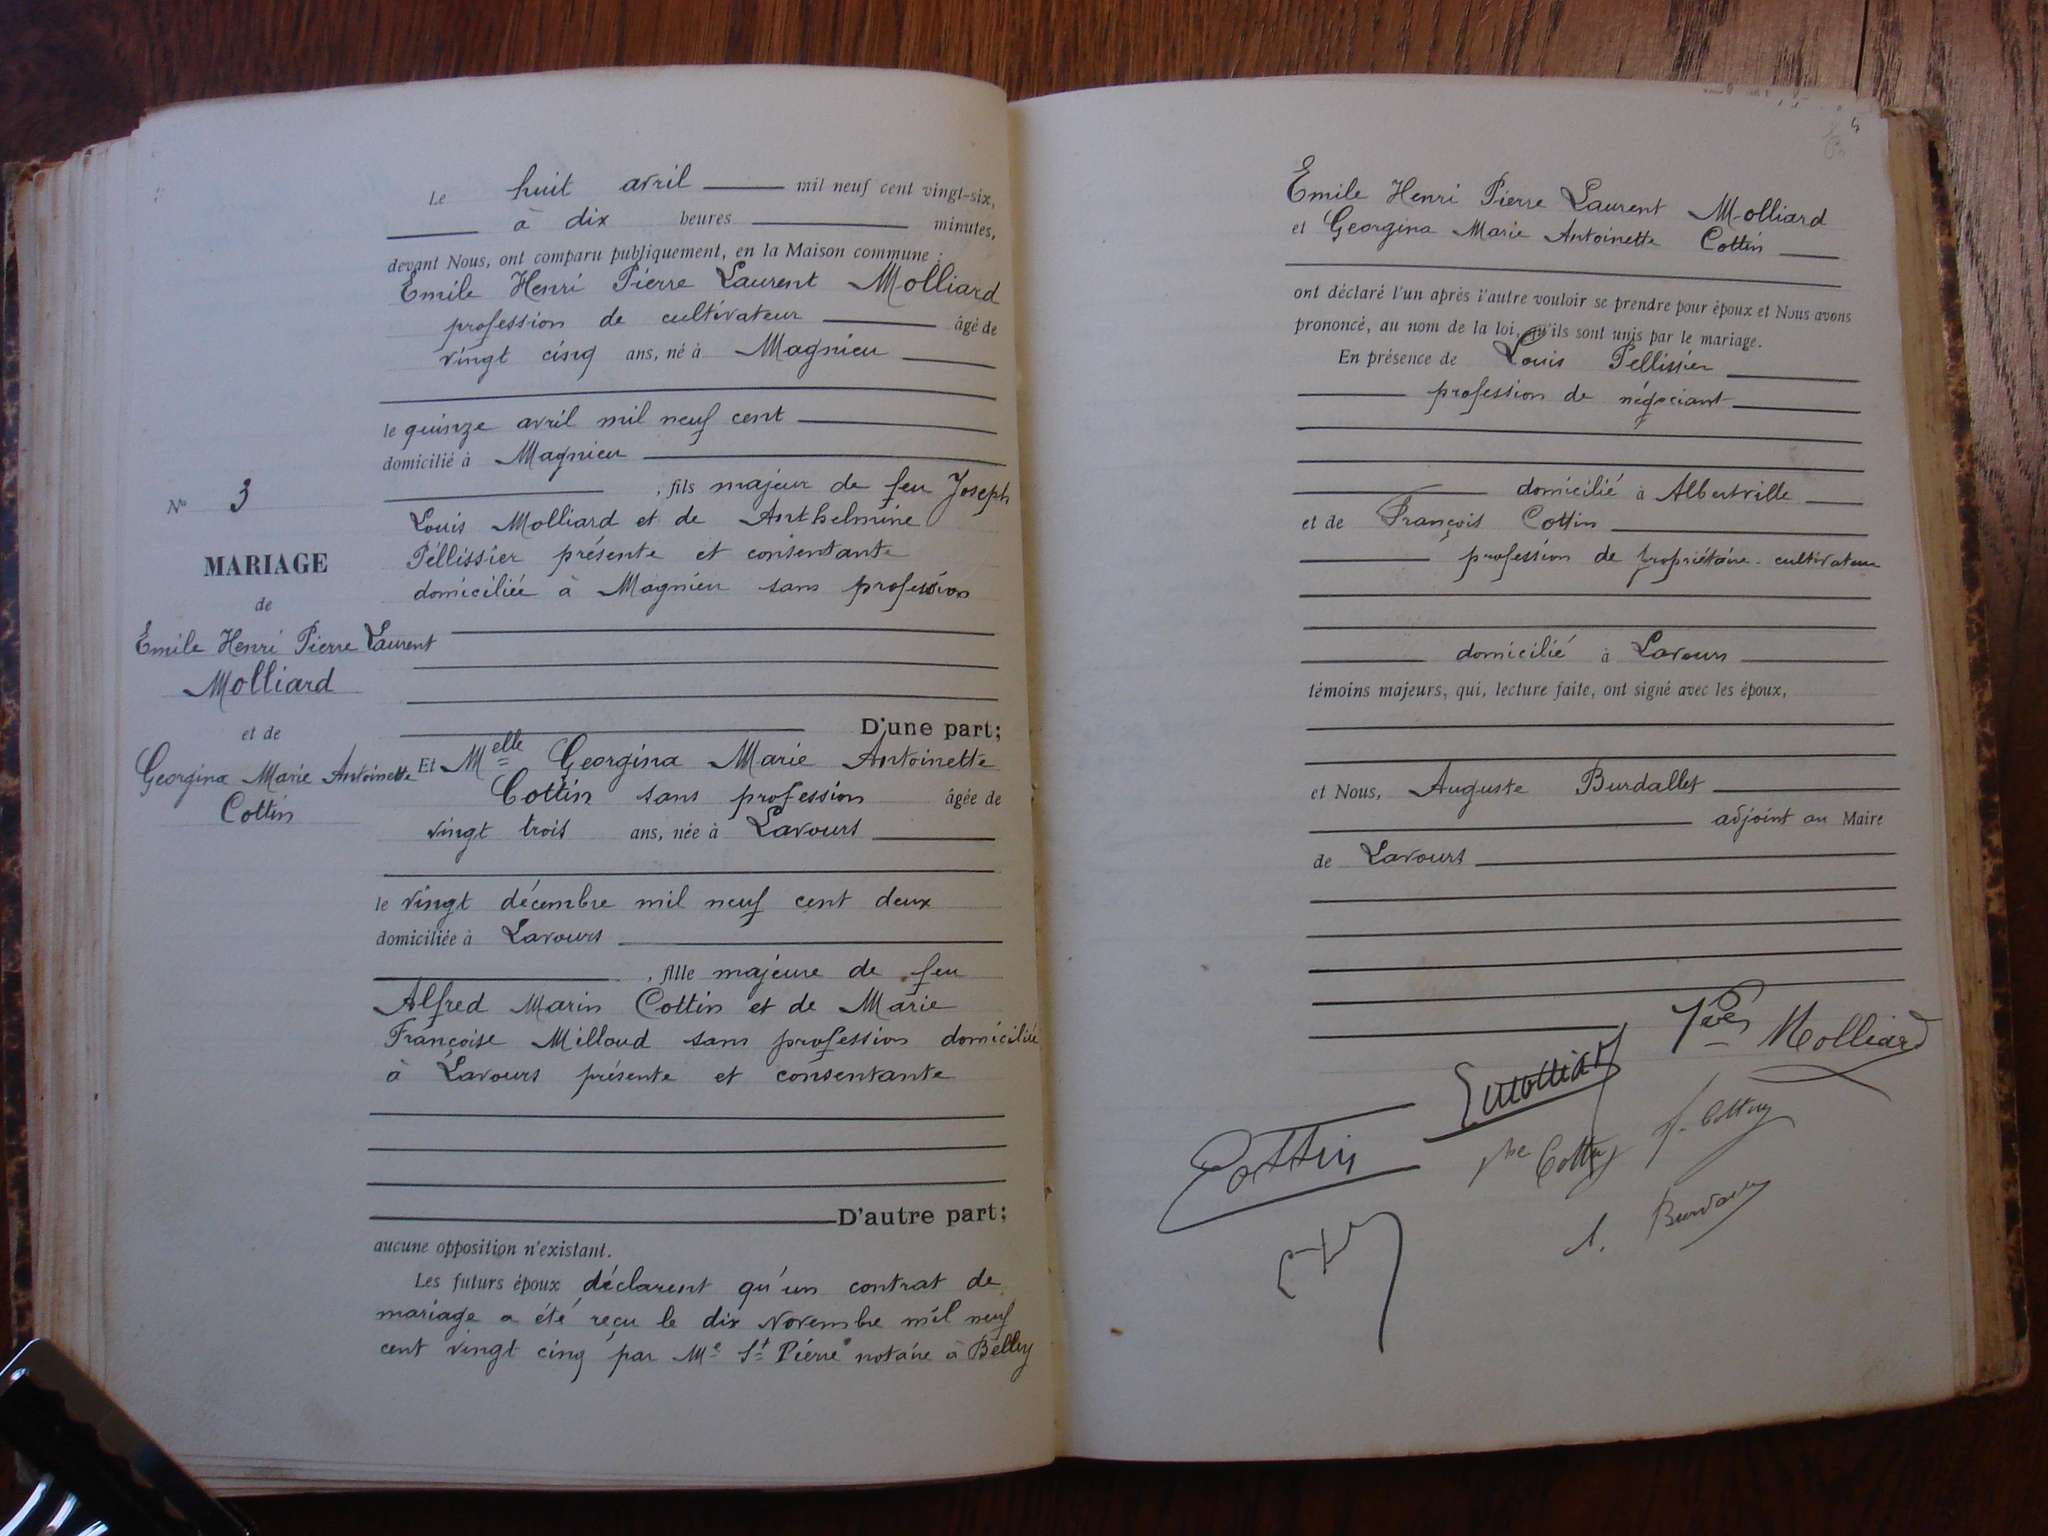 Le huit avril mil neuf cent vingt-six,
à dix heures minutes,
devant Nous, ont comparu publiquement, en la Maison commune :
Emile Henri Pierre Laurent Molliard
profession de cultivateur âgé de
vingt cinq ans, né à Magnieu
le quinze avril mil neuf cent
domicilié à Magnieu
, fils majeur de feu Joseph
Louis Molliard et de Anthelmine
Péllissier présente et consentante
domiciliée à Magnieu sans profession
D'une part;
Et Melle Georgina Marie Antoinette
Cottin sans profession âgée de
vingt trois ans, née à Lavours
le vingt décembre mil neuf cent deux
domiciliée à Lavours
, fille majeure de feu
Alfred Marin Cottin et de Marie
Françoise Milloud sans profession domiciliée
à Lavours présente et consentante
D'autre part;
aucune opposition n'existant.
Les futurs époux déclarent qu'un contrat de
mariage a été reçu le dix Novembre mil neuf
cent vingt cinq par Me St Pierre notaire à Belley
No 3
MARIAGE
de
Emile Henri Pierre Laurent
Molliard
et de
Georgina Marie Antoinette
Cottin
Emile Henri Pierre Laurent Molliard
et Georgina Marie Antoinette Cottin
ont déclaré l'un après l'autre vouloir se prendre pour époux et Nous avons
prononcé, au nom de la loi, qu'ils sont unis par le mariage.
En présence de Louis Pellissier
profession de négociant
domicilié à Albertville
et de François Cottin
profession de propriétaire-cultivateur
domicilié à Lavours
témoins majeurs, qui, lecture faite, ont signé avec les époux,
et Nous, Auguste Burdallet
adjoint au Maire
de Lavours
Vve Molliard
EMolliard
Cottin
Vve Cottin
F. Cottin
A. Burdallet